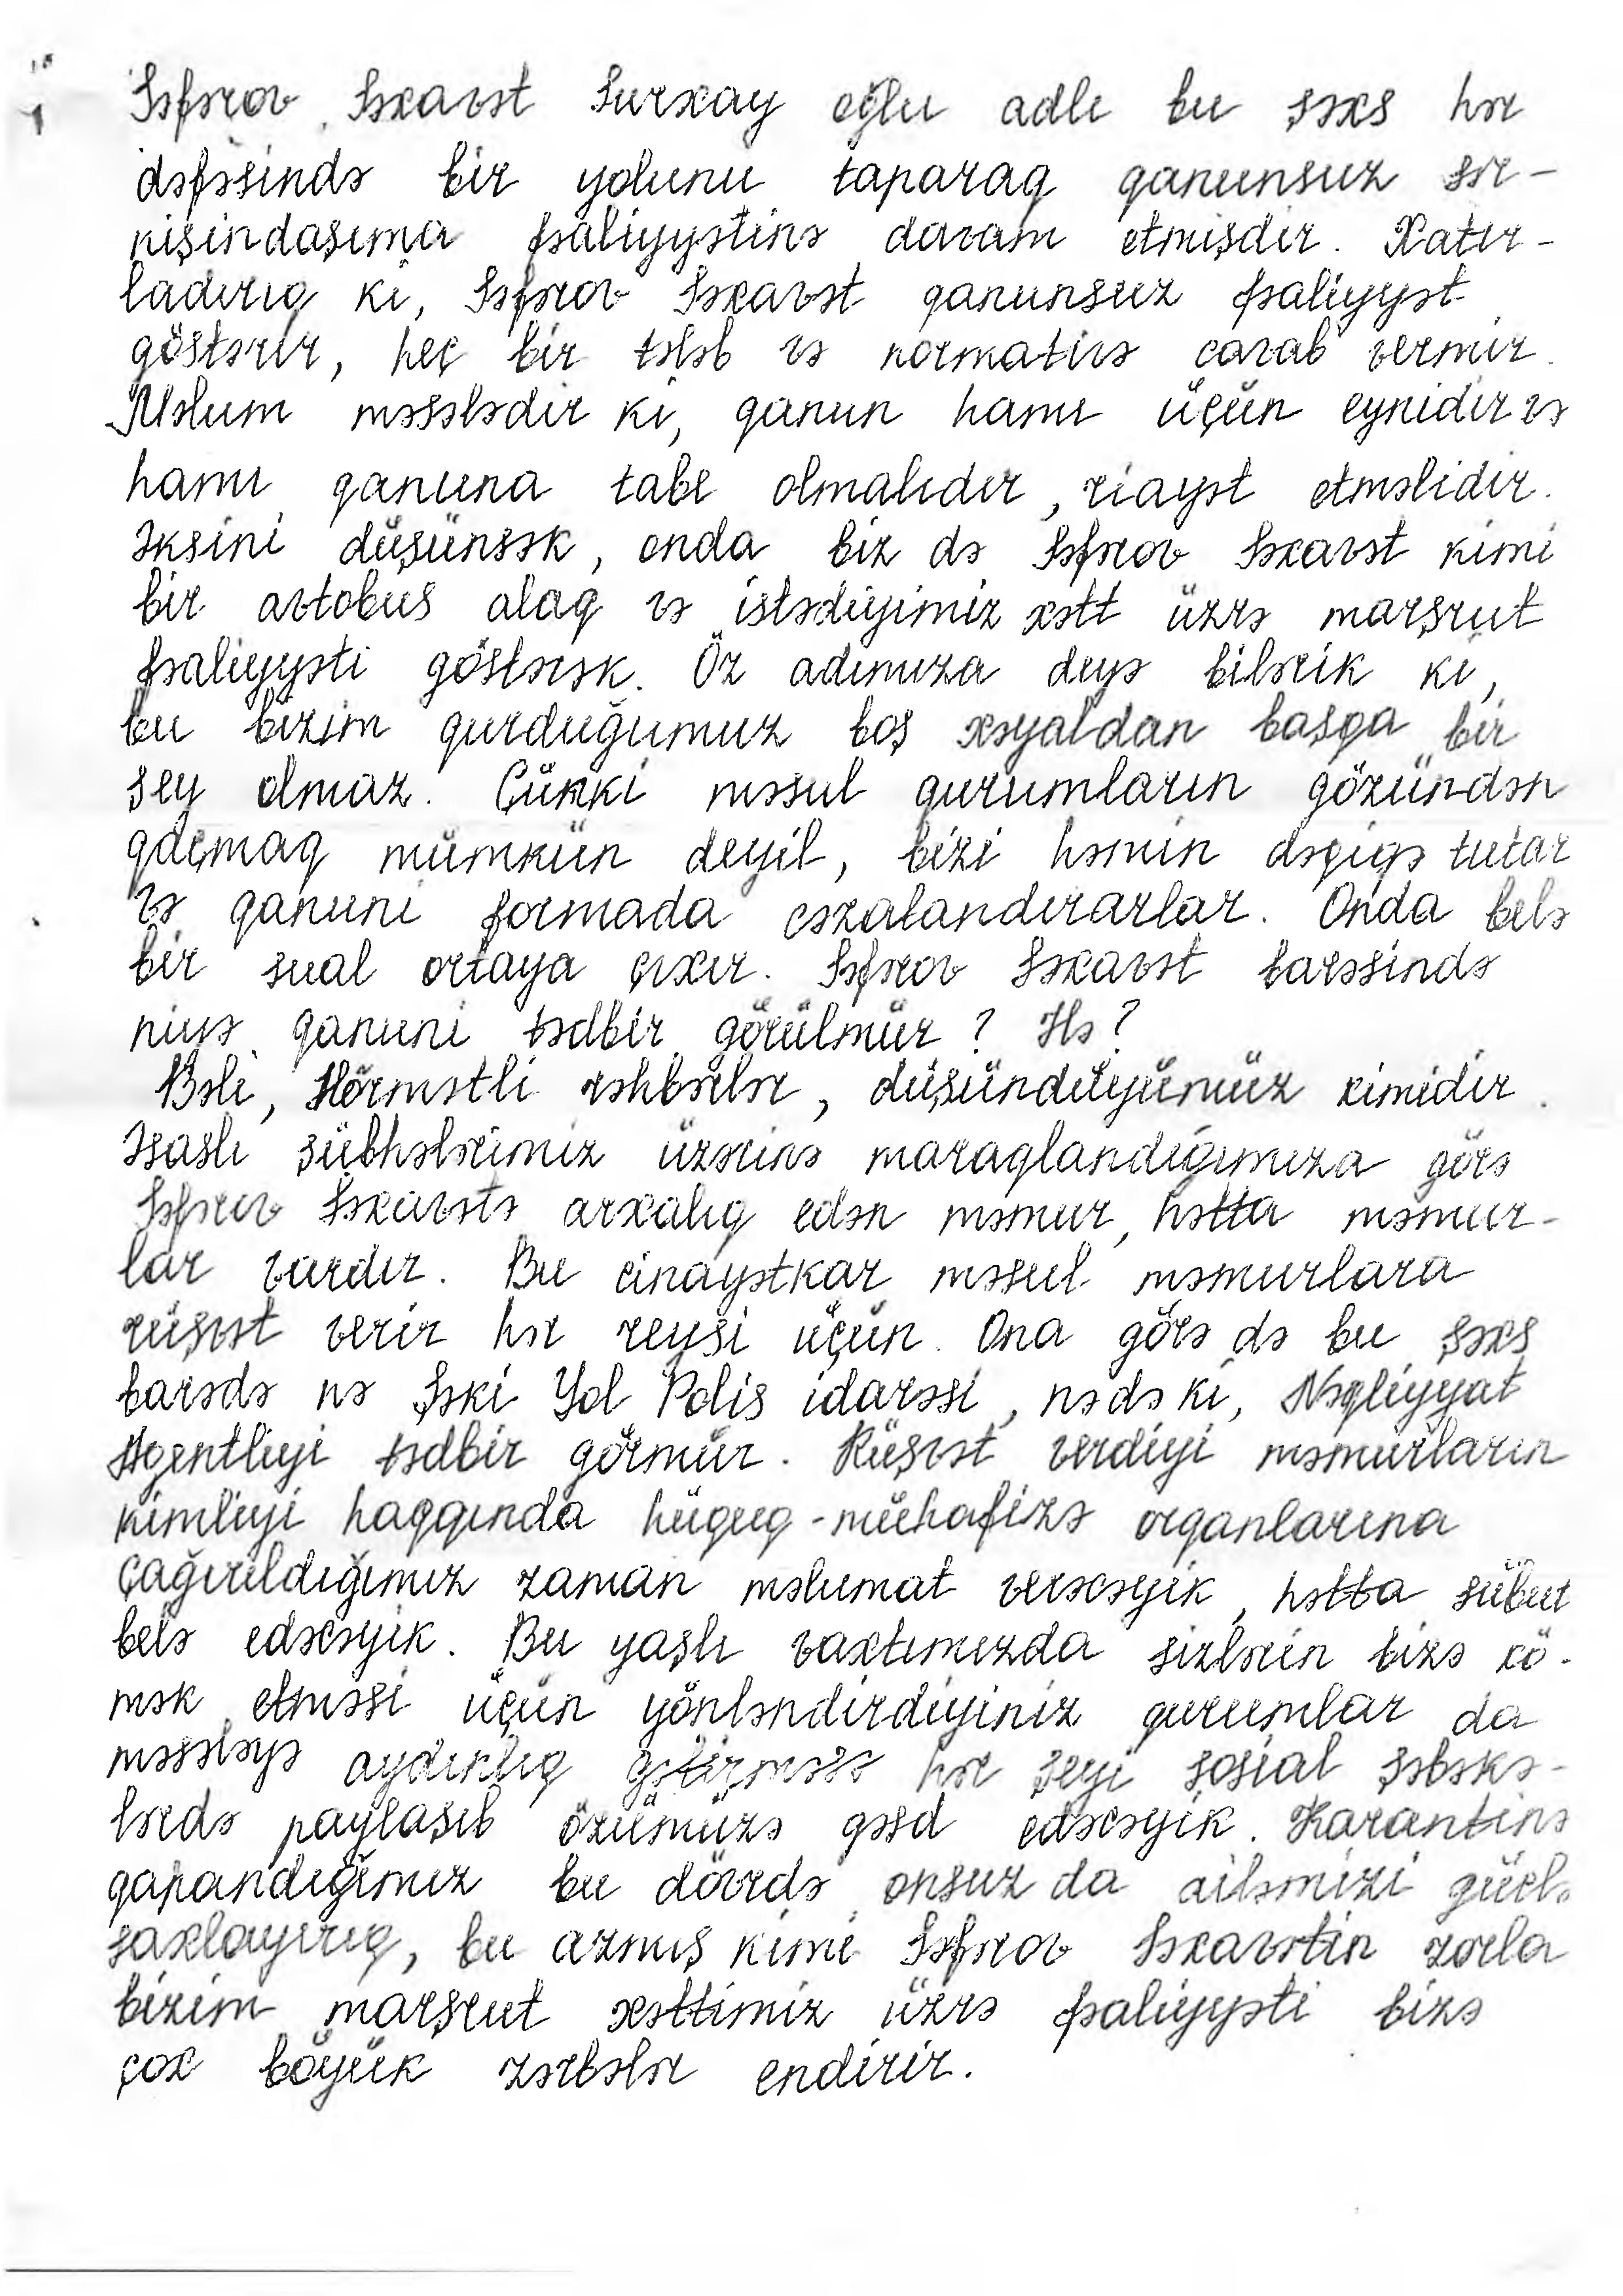 Səfərov Səxavət Surxay oğlu adlı bu şəxs hər
dəfəsində bir yolunu taparaq qanunsuz sər-
nişindaşıma fəaliyyətinə davam etmişdir. Xatır-
ladırıq ki, Səfərov Səxavət qanunsuz fəaliyyət
göstərir, heç bir tələb və normativə cavab vermir.
Məlum məsələdir ki, qanun hamı üçün eynidir və
hamı qanuna tabe olmalıdır, riayət etməlidir.
Əksini düşünsək, onda biz də Səfərov Səxavət kimi
bir avtobus alaq və istədiyimiz xətt üzrə marşrut
fəaliyyəti göstərək. Öz adımıza deyə bilərik ki,
bu bizim qurduğumuz boş xəyaldan başqa bir
şey olmaz. Çünki məsul qurumların gözündən
qaçmaq mümkün deyil, bizi həmin dəqiqə tutar
və qanuni formada cəzalandırarlar. Onda belə
bir sual ortaya çıxır. Səfərov Səxavət barəsində
niyə qanuni tədbir görülmür? Hə?
Bəli, Hörmətli rəhbərlər, düşündüyümüz kimidir.
Əsaslı şübhələrimiz üzərinə maraqlandığımıza görə
Səfərov Səxavətə arxalıq edən məmur, hətta məmur-
lar vardır. Bu cinayətkar məsul məmurlara
rüşvət verir hər reysi üçün. Ona görə də bu şəxs
barədə nə Şəki Yol Polis idarəsi, nədə ki, Nəqliyyat
Agentliyi tədbir görmür. Rüşvət verdiyi məmurların
kimliyi haqqında hüquq-mühafizə orqanlarına
çağırıldığımız zaman məlumat verəcəyik, hətta sübut
belə edəcəyik. Bu yaşlı vaxtımızda sizlərin bizə kö-
mək etməsi üçün yönləndirdiyiniz qurumlar da
məsələyə aydınlıq gətirməsə hər şeyi sosial şəbəkə-
lərdə paylaşıb özümüzə qəsd edəcəyik. Karantinə
qapandığımız bu dövrdə onsuz da ailəmizi güclə
saxlayırıq, bu azmış kimi Səfərov Səxavətin zorla
bizim marşrut xəttimiz üzrə fəaliyyəti bizə
çox böyük zərbələr endirir.